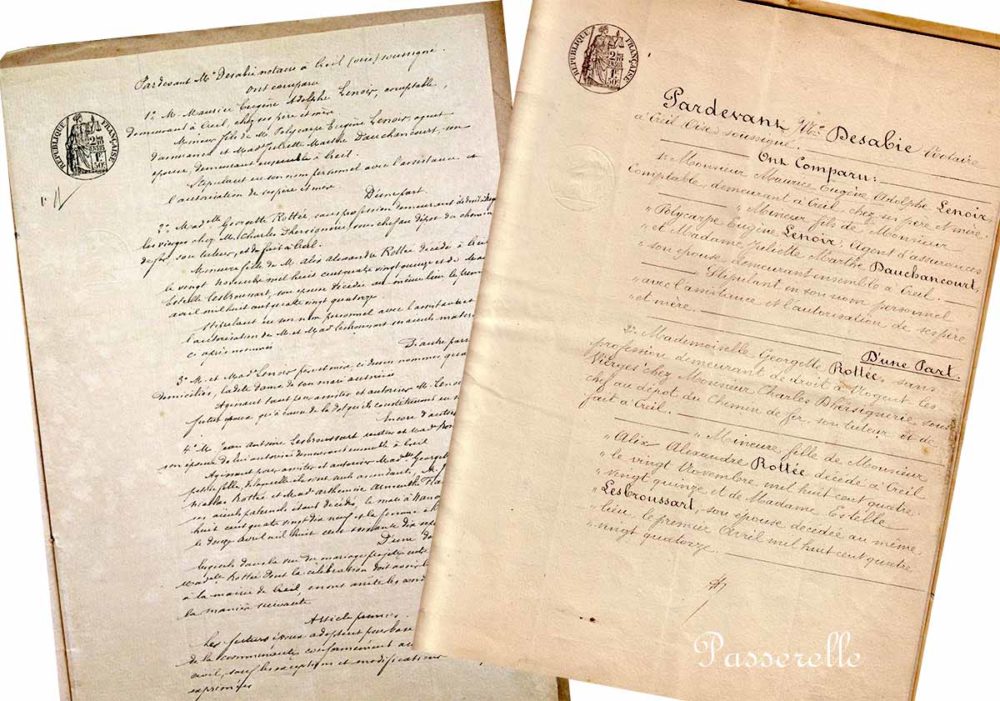 Pardevant Me Desabie notaire à Creil (oise) soussigné
ont comparu
1o M. Maurice Eugène Adolphe Lenoir, comptable,
demeurant à Creil, chez ses père et mère
Mineur fils de Mr Polycarpe Eugène Lenoir agent
d'assurances et Made Juliette Marthe Dauchancourt, son
épouse, demeurant ensemble à Creil.
Stipulant en son nom personnel avec l'assistance et
l'autorisation de ses père et mère
D'une part
2o Madelle Georgette Rottée, sans profession demeurant de droit à
les vierges chez M. Charles sous chef au dépôt du chemin
de fer, son tuteur, et de fait à Creil.
Mineure fille de M. Alix Alexandre Rottée décédé à Creil
le vingt Novembre mil huit cent quatre vingt quinze et de
Estelle Lesbroussart, son épouse décédée au même lieu le
avril mil huit cent quatre vingt quatorze
Stipulant en son nom personnel avec l'assistance
l'autorisation de M. et Made Lesbroussart ses aïeuls
ci après nommés
D'autre part
3o M. et Made Lenoir père et mère, ci dessus nommés
domiciliés, la dite dame de son mari autorisée
Agissant tant pour assister et autoriser M. Lenoir
futur époux qu'à cause de la dot qu'ils constitueront
Encore d'autre
4o M. Jean Antoine Lesbroussart et Made
son épouse de lui autorisée demeurant ensemble à Creil
Agissant pour assister et autoriser Madelle Georgette
petite fille,
Nicolas Rottée et Made
ses aïeuls paternels étant décédés, le mari à
huit cent quatre vingt dix neuf et la femme à
le douze avril mil huit cent soixante dix
D'une
Lesquels dans la vue du mariage projeté entre
Madelle Rottée dont la célébration doit avoir
à la mairie de Creil, en ont arrêté les
la manière suivante
Article premier.
Les futurs époux adoptent pour base
de la communauté conformément au
civil, sauf les exceptions et modifications
exprimées
RÉPUBLIQUE FRANÇAISE
Pardevant Me Desabie Notaire
à Creil Oise soussigné.
Ont Comparu:
1o Monsieur Maurice Eugène Adolphe Lenoir
Comptable demeurant à Creil chez ses père et mère.
" Mineur fils de Monsieur
" Polycarpe Eugène Lenoir, Agent d'assurances
" et Madame Juliette Marthe Dauchancourt,
" son épouse demeurant ensemble à Creil.
" Stipulant en son nom personnel
" avec l'assistance et l'autorisation de ses père
" et mère.
D'une Part.
2o Mademoiselle Georgette Rottée, sans
profession demeurant de droit à Nogent les
Vierges chez Monsieur Charles sous
chef au dépôt du Chemin de fer son tuteur et de
fait à Creil.
" Mineure fille de Monsieur
" Alix Alexandre Rottée, décédé à Creil
" le vingt Novembre mil huit cent quatre
" vingt quinze et de Madame Estelle
Lesbroussart, son épouse décédée au même
" lieu le premier Avril mil huit cent quatre
" vingt quatorze
RÉPUBLIQUE FRANÇAISE
Passerelle